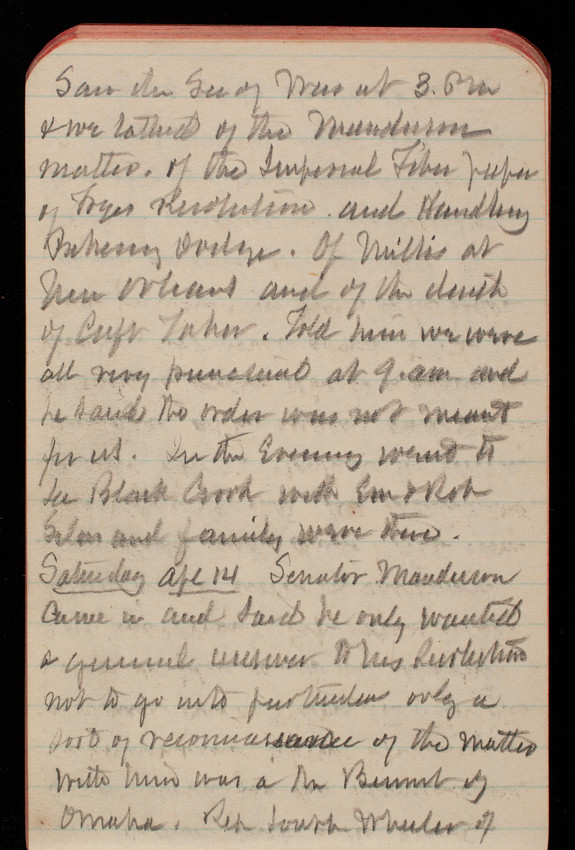 Saw the Sec of War at 3. Pm
& we talked of the Manderson
matter. of the Imperial Fiber paper
of resolution. and Handling
Of Millis at
New Orleans and of the death
of Capt Taber. Told him we were
all very punctual at 9. am and
he said the order was not meant
for us. In the Evening went to
see Black Crook with Em & Rob
and family were there.
Saturday Apl 14 Senator Manderson
came in and said he only wanted
a general answer to his Resolution
not to go into particular only a
sort of reconnaissance of the matter
with him was a Mr Bennet of
Omaha. Rep Wheeler of